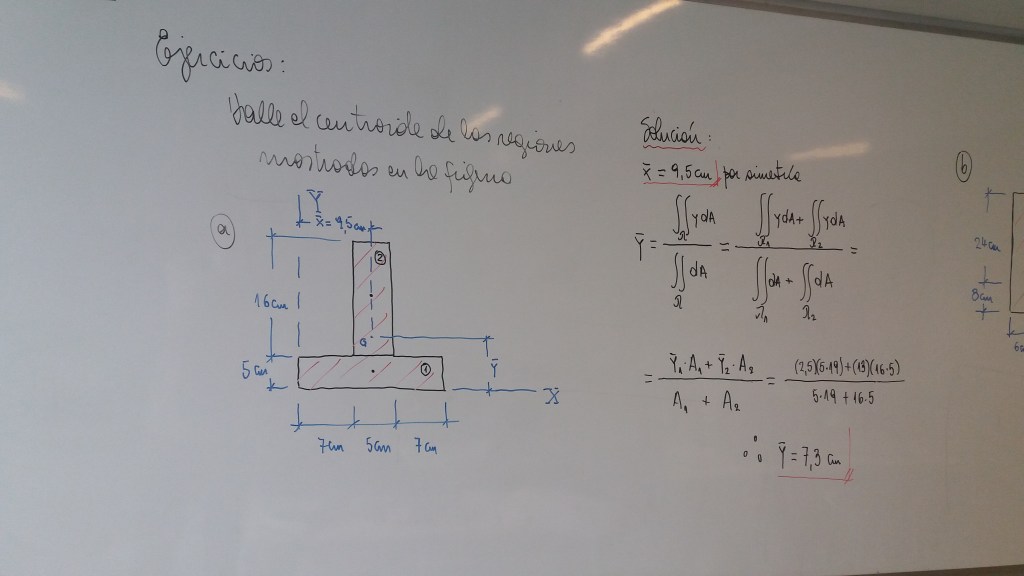 Ejercicios:
Halle el centroide de las regiones
mostradas en la figura
a
Ȳ
x̄ = 9,5cm
2
16cm
G
5cm
1
Ȳ
X̄
7cm 5cm 7cm
Solución:
x̄ = 9,5cm por simetría
Ȳ = ∬_R ydA / ∬_R dA = (∬_R₁ ydA + ∬_R₂ ydA) / (∬_R₁ dA + ∬_R₂ dA) =
= (Ȳ₁·A₁ + Ȳ₂·A₂) / (A₁ + A₂) = ((2,5)(5·19) + (13)(16·5)) / (5·19 + 16·5)
∴ Ȳ = 7,3 cm
b
24cm
8cm